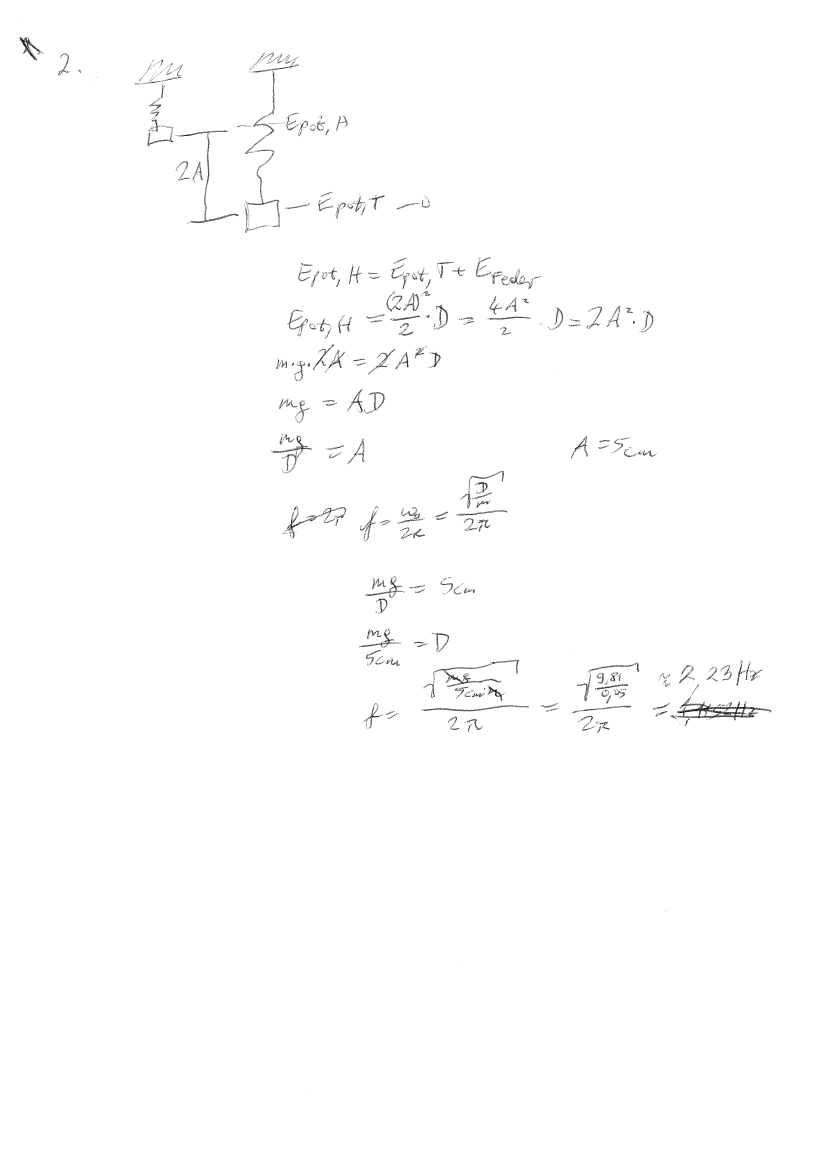 2.
Epot, H
2A
Epot, T → 0
Epot, H = Epot, T + EFeder
Epot, H = (2A)²/2 · D = 4A²/2 · D = 2A² · D
m·g·2A = 2A²D
mg = AD
mg/D = A A = 5cm
f = ω₀/2π = √(D/m)/2π
mg/D = 5cm
mg/5cm = D
f = √(mg/5cm·m)/2π = √(9,81/0,05)/2π ≈ 2,23Hz